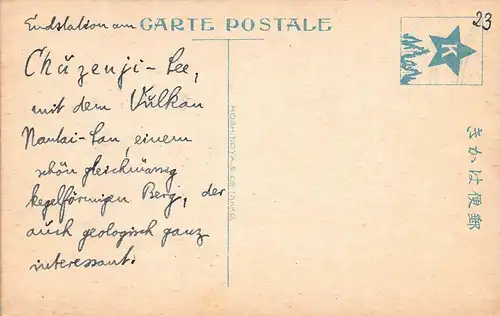 Endstation am CARTE POSTALE 23
K
Chūzenji-See,
mit dem Vulkan
Nantai-San, einem
schön gleichmässig
kegelförmigen Berg, der
auch geologisch ganz
interessant.
きかは便郵